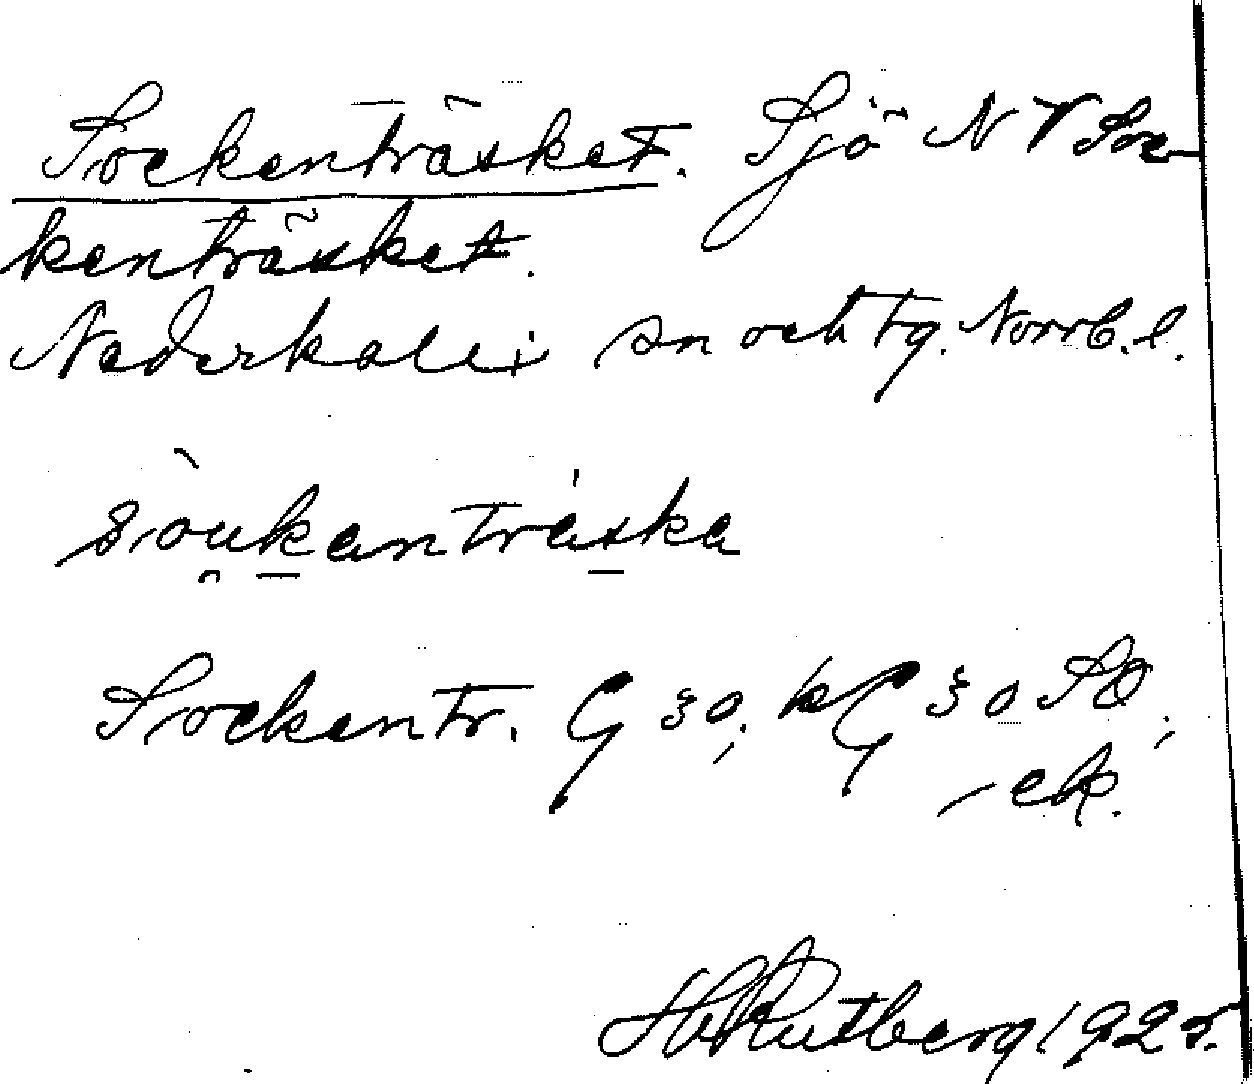 Sockenträsket. Sjö NV Soc-
kenträsket.
Nederkalix sn och tg. Norrb. l.
sòukanträska
Sockentr. G 30; kG 30 SO,
- ek.
Hj Rutberg 1925.